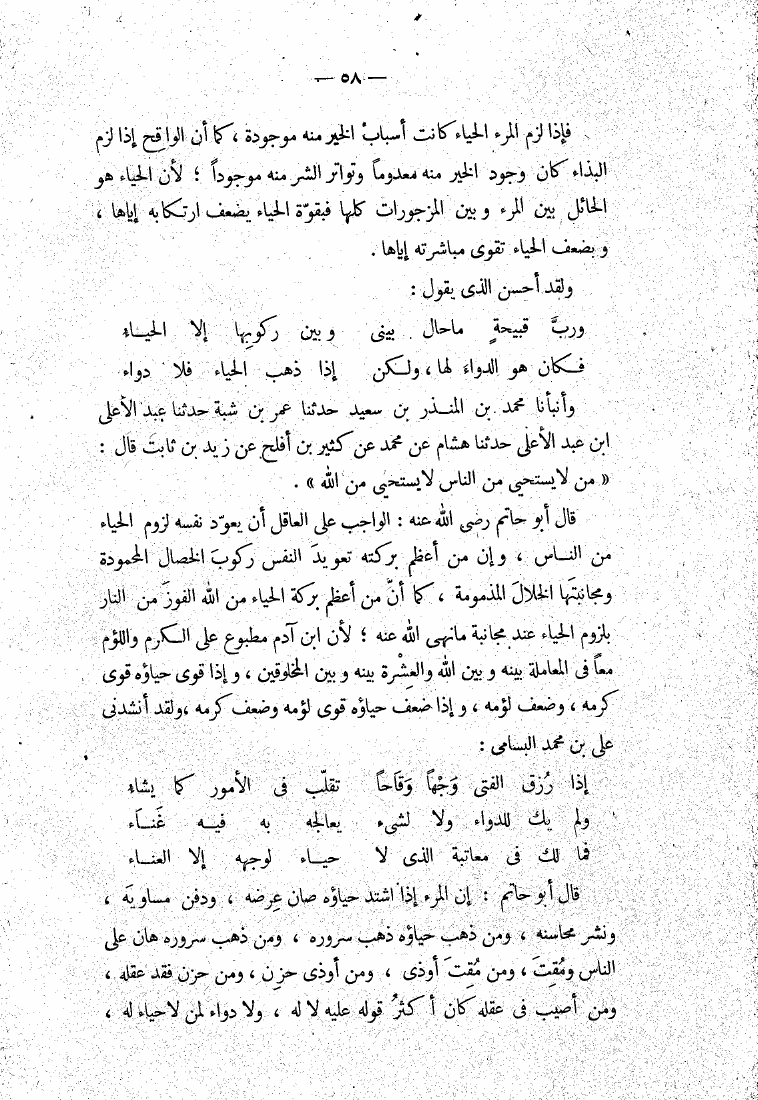 — ٥٨ —
فإذا لزم المرء الحياء كانت أسبابُ الخير منه موجودة ، كما أن الواقح إذا لزم
البذاء كان وجود الخير منه معدوماً وتواتر الشر منه موجوداً ؛ لأن الحياء هو
الحائل بين المرء وبين المزجورات كلها فبقوّة الحياء يضعف ارتكابه إياها ،
وبضعف الحياء تقوى مباشرته إياها .
ولقد أحسن الذى يقول :
وربَّ قبيحةٍ ماحال بينى وبين ركوبِها إلا الحياء
فكان هو الدواءَ لها ، ولكن إذا ذهب الحياء فلا دواء
وأنبأنا محمد بن المنذر بن سعيد حدثنا عمر بن شبة حدثنا عبد الأعلى
ابن عبد الأعلى حدثنا هشام عن محمد عن كثير بن أفلح عن زيد بن ثابت قال :
« من لا يستحيى من الناس لا يستحيى من الله » .
قال أبو حاتم رضى الله عنه : الواجب على العاقل أن يعوّد نفسه لزوم الحياء
من الناس ، وإن من أعظم بركته تعويدَ النفس ركوبَ الخصال المحمودة
ومجانبتَها الخلالَ المذمومة ، كما أنّ من أعظم بركة الحياء من الله الفوزَ من النار
بلزوم الحياء عند مجانبة مانهى الله عنه ؛ لأن ابن آدم مطبوع على الكرم واللؤم
معاً فى المعاملة بينه وبين الله والعِشْرة بينه وبين المخلوقين ، وإذا قوى حياؤه قوى
كرمه ، وضعف لؤمه ، وإذا ضعف حياؤه قوى لؤمه وضعف كرمه ،ولقد أنشدنى
على بن محمد البسامى :
إذا رُزق الفتى وَجْهاً وَقَاحاً تقلّب فى الأمور كما يشاء
ولم يك للدواء ولا لشىء يعالجه به فيه غَنَاء
فما لك فى معاتبة الذى لا حياء لوجهه إلا العناء
قال أبو حاتم : إن المرء إذا اشتد حياؤه صان عِرضه ، ودفن مساويَه ،
ونشر محاسنه ، ومن ذهب حياؤه ذهب سروره ، ومن ذهب سروره هان على
الناس ومُقِتَ ، ومن مُقِتَ أوذى ، ومن أوذى حزِن ، ومن حزن فقد عقله ،
ومن أصيب فى عقله كان أكثرُ قوله عليه لا له ، ولا دواء لمن لاحياء له ،